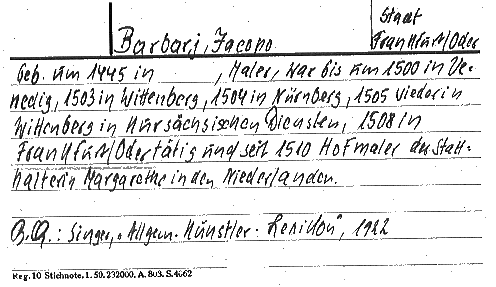 Stadt
Barbarj, Jacopo Frankfurt/Oder
Geb. um 1445 in , Maler, war bis um 1500 in Ve-
nedig, 1503 in Wittenberg, 1504 in Nürnberg, 1505 wieder in
Wittenberg in Kursächsischen Diensten, 1508 in
Frankfurt/Oder tätig und seit 1510 Hofmaler der Statt-
halterin Margarethe in den Niederlanden.
Singer, „Allgem. Künstler-Lexikon", 1922
Reg. 10 Stichnote. 1. 50. 232000. A. 803. S. 4662